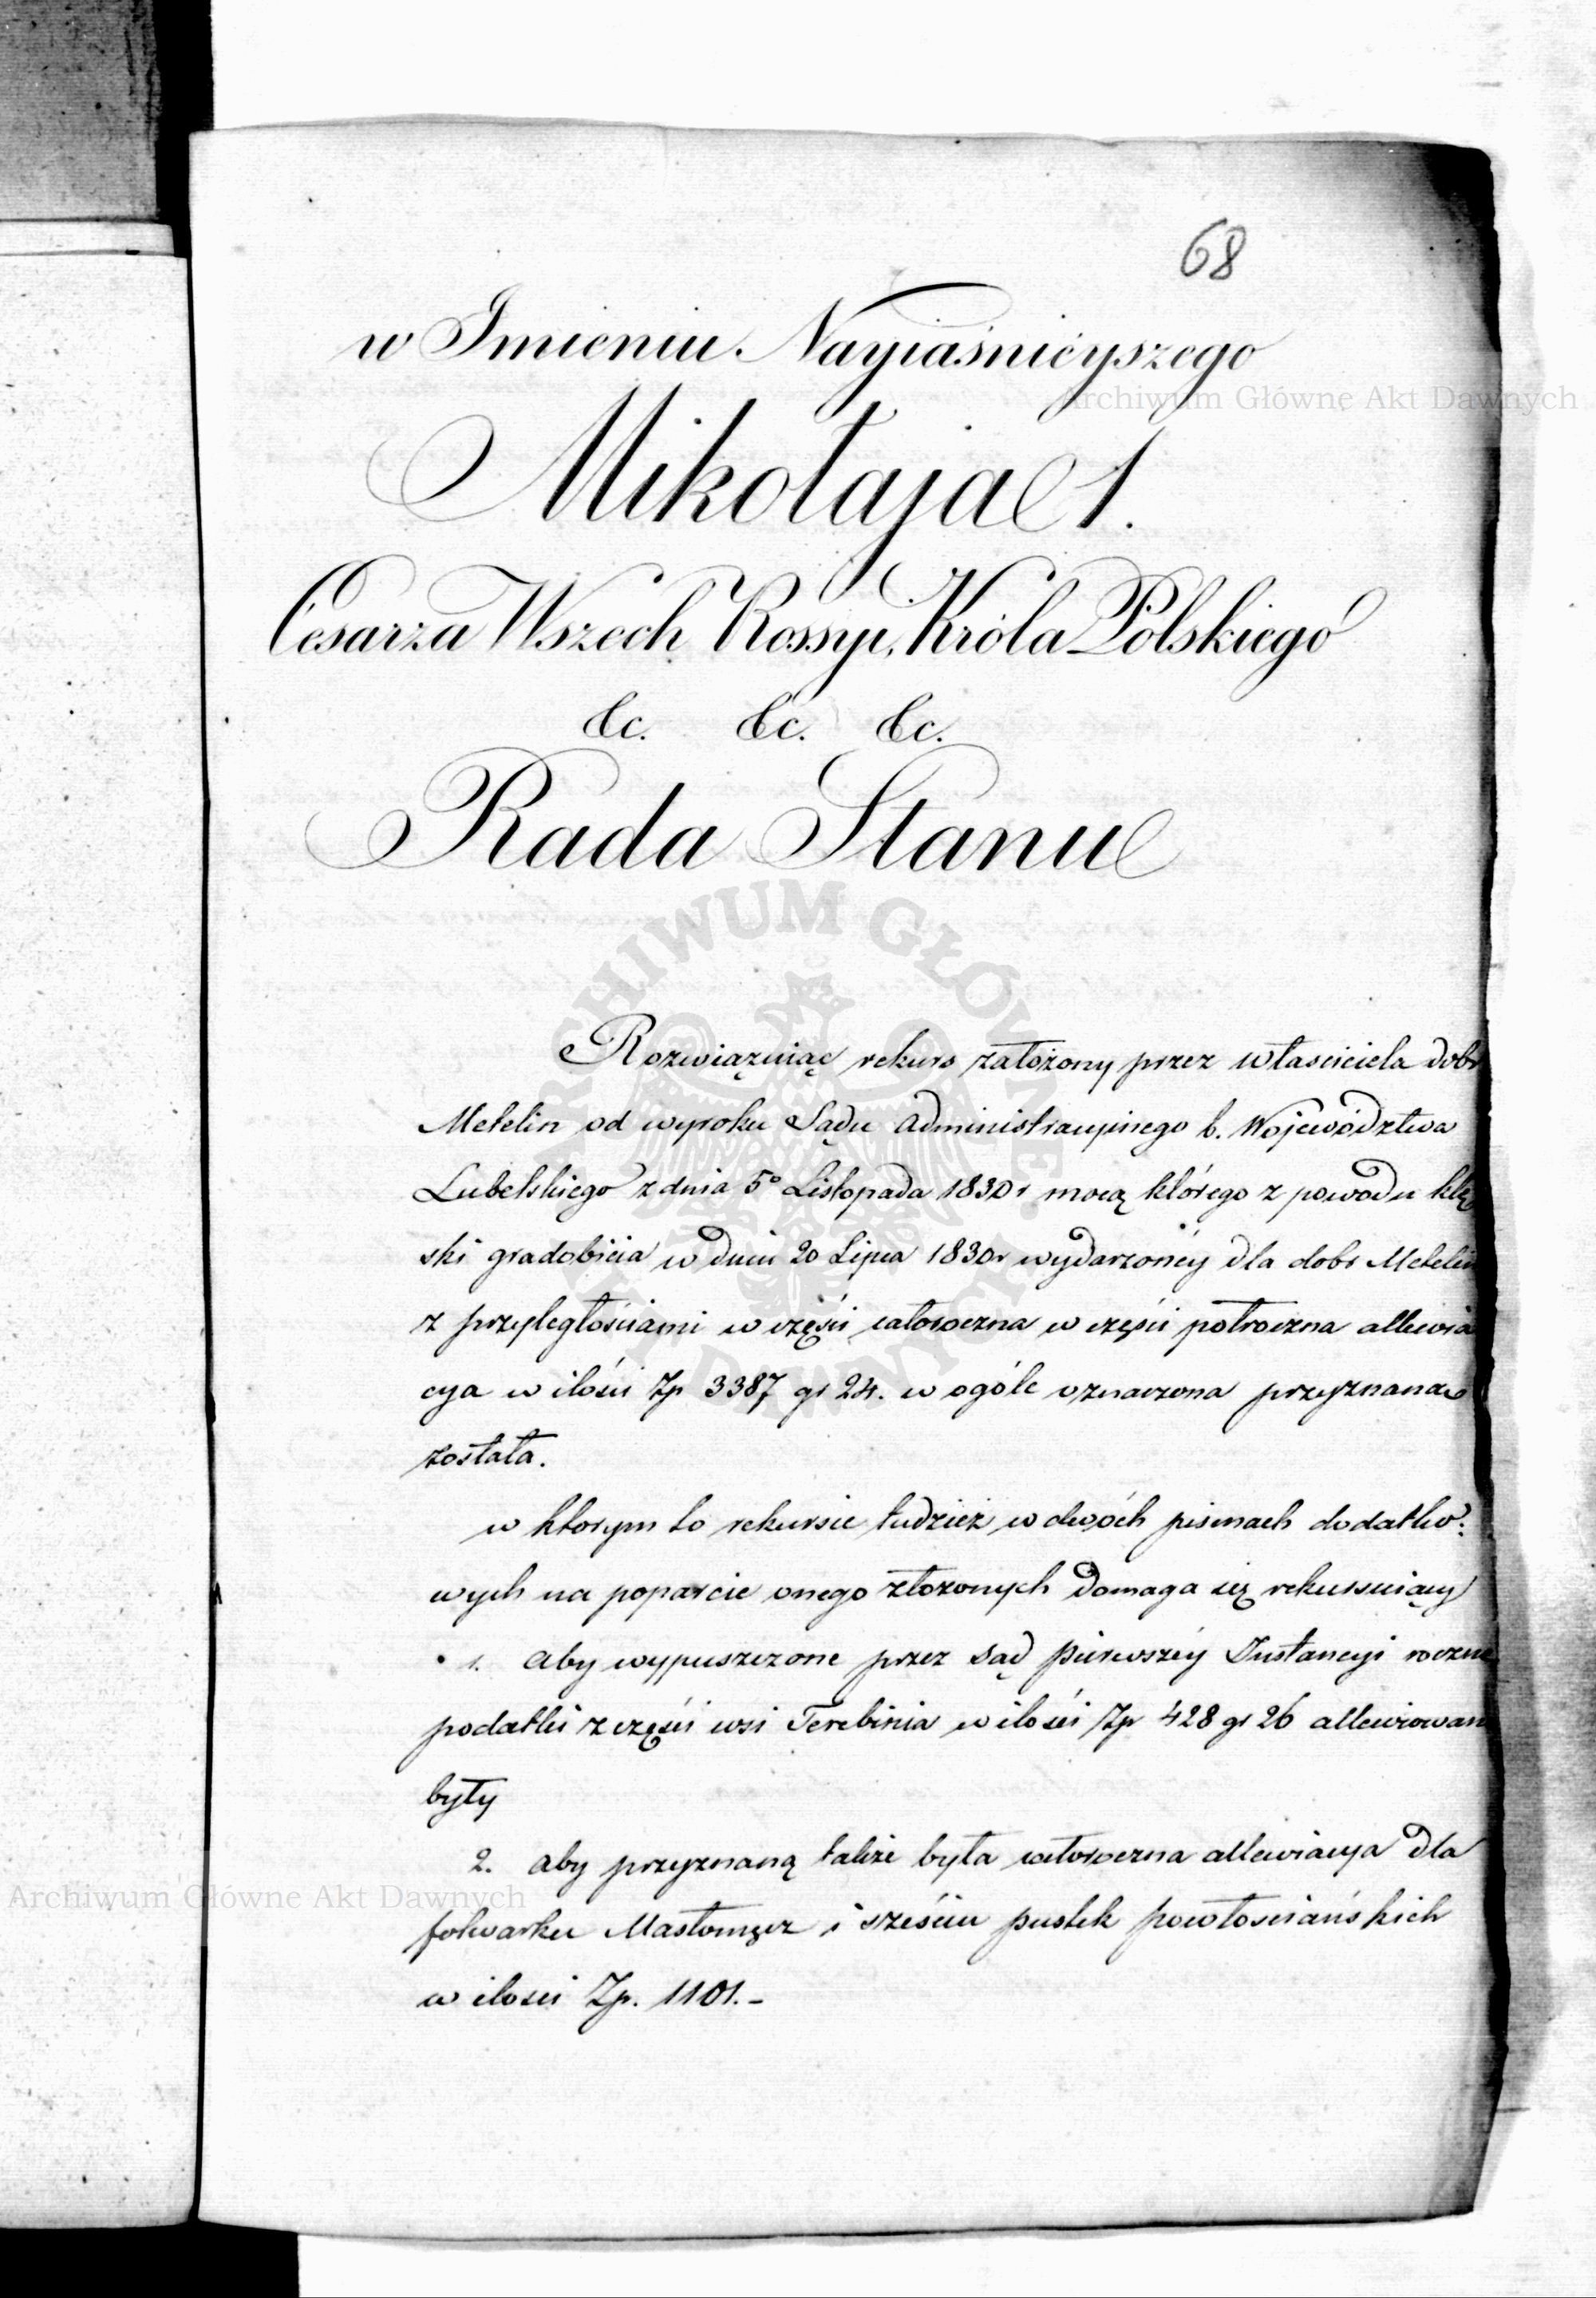 68
w Imieniu Nayiaśnieyszego
Mikołaja 1.
Cesarza Wszech Rossyi, Króla Polskiego
&c. &c. &c.
Rada Stanu
Rozwiązuiąc rekurs założony przez właściciela dobr
Metelin od wyroku Sądu Administracyinego b. Województwa
Lubelskiego z dnia 5º Listopada 1830 r mocą którego z powodu klę
ski gradobicia w dniu 20 Lipca 1830 r wydarzonéy dla dobr Metelin
z przyległościami w części całoroczna w części półroczna allewia
cya w ilości Zp 3387 gr 24. w ogóle oznaczona przyznana
została.
w którym to rekursie tudzież w dwóch pismach dodatko:
wych na poparcie onego złożonych domaga się rekursuiący
1. aby wypuszczone przez Sąd pierwszéy Instancyi roczne
podatki z części wsi Terebinia w ilości Zp 428 gr 26 allewiowan
były
2. aby przyznaną także była całoroczna allewiacya dla
folwarku Masłomęcz i sześciu pustek powłościańskich
w ilości Zp. 1101.-
Archiwum Główne Akt Dawnych
ARCHIWUM GŁÓWNE AKT DAWNYCH
Archiwum Główne Akt Dawnych